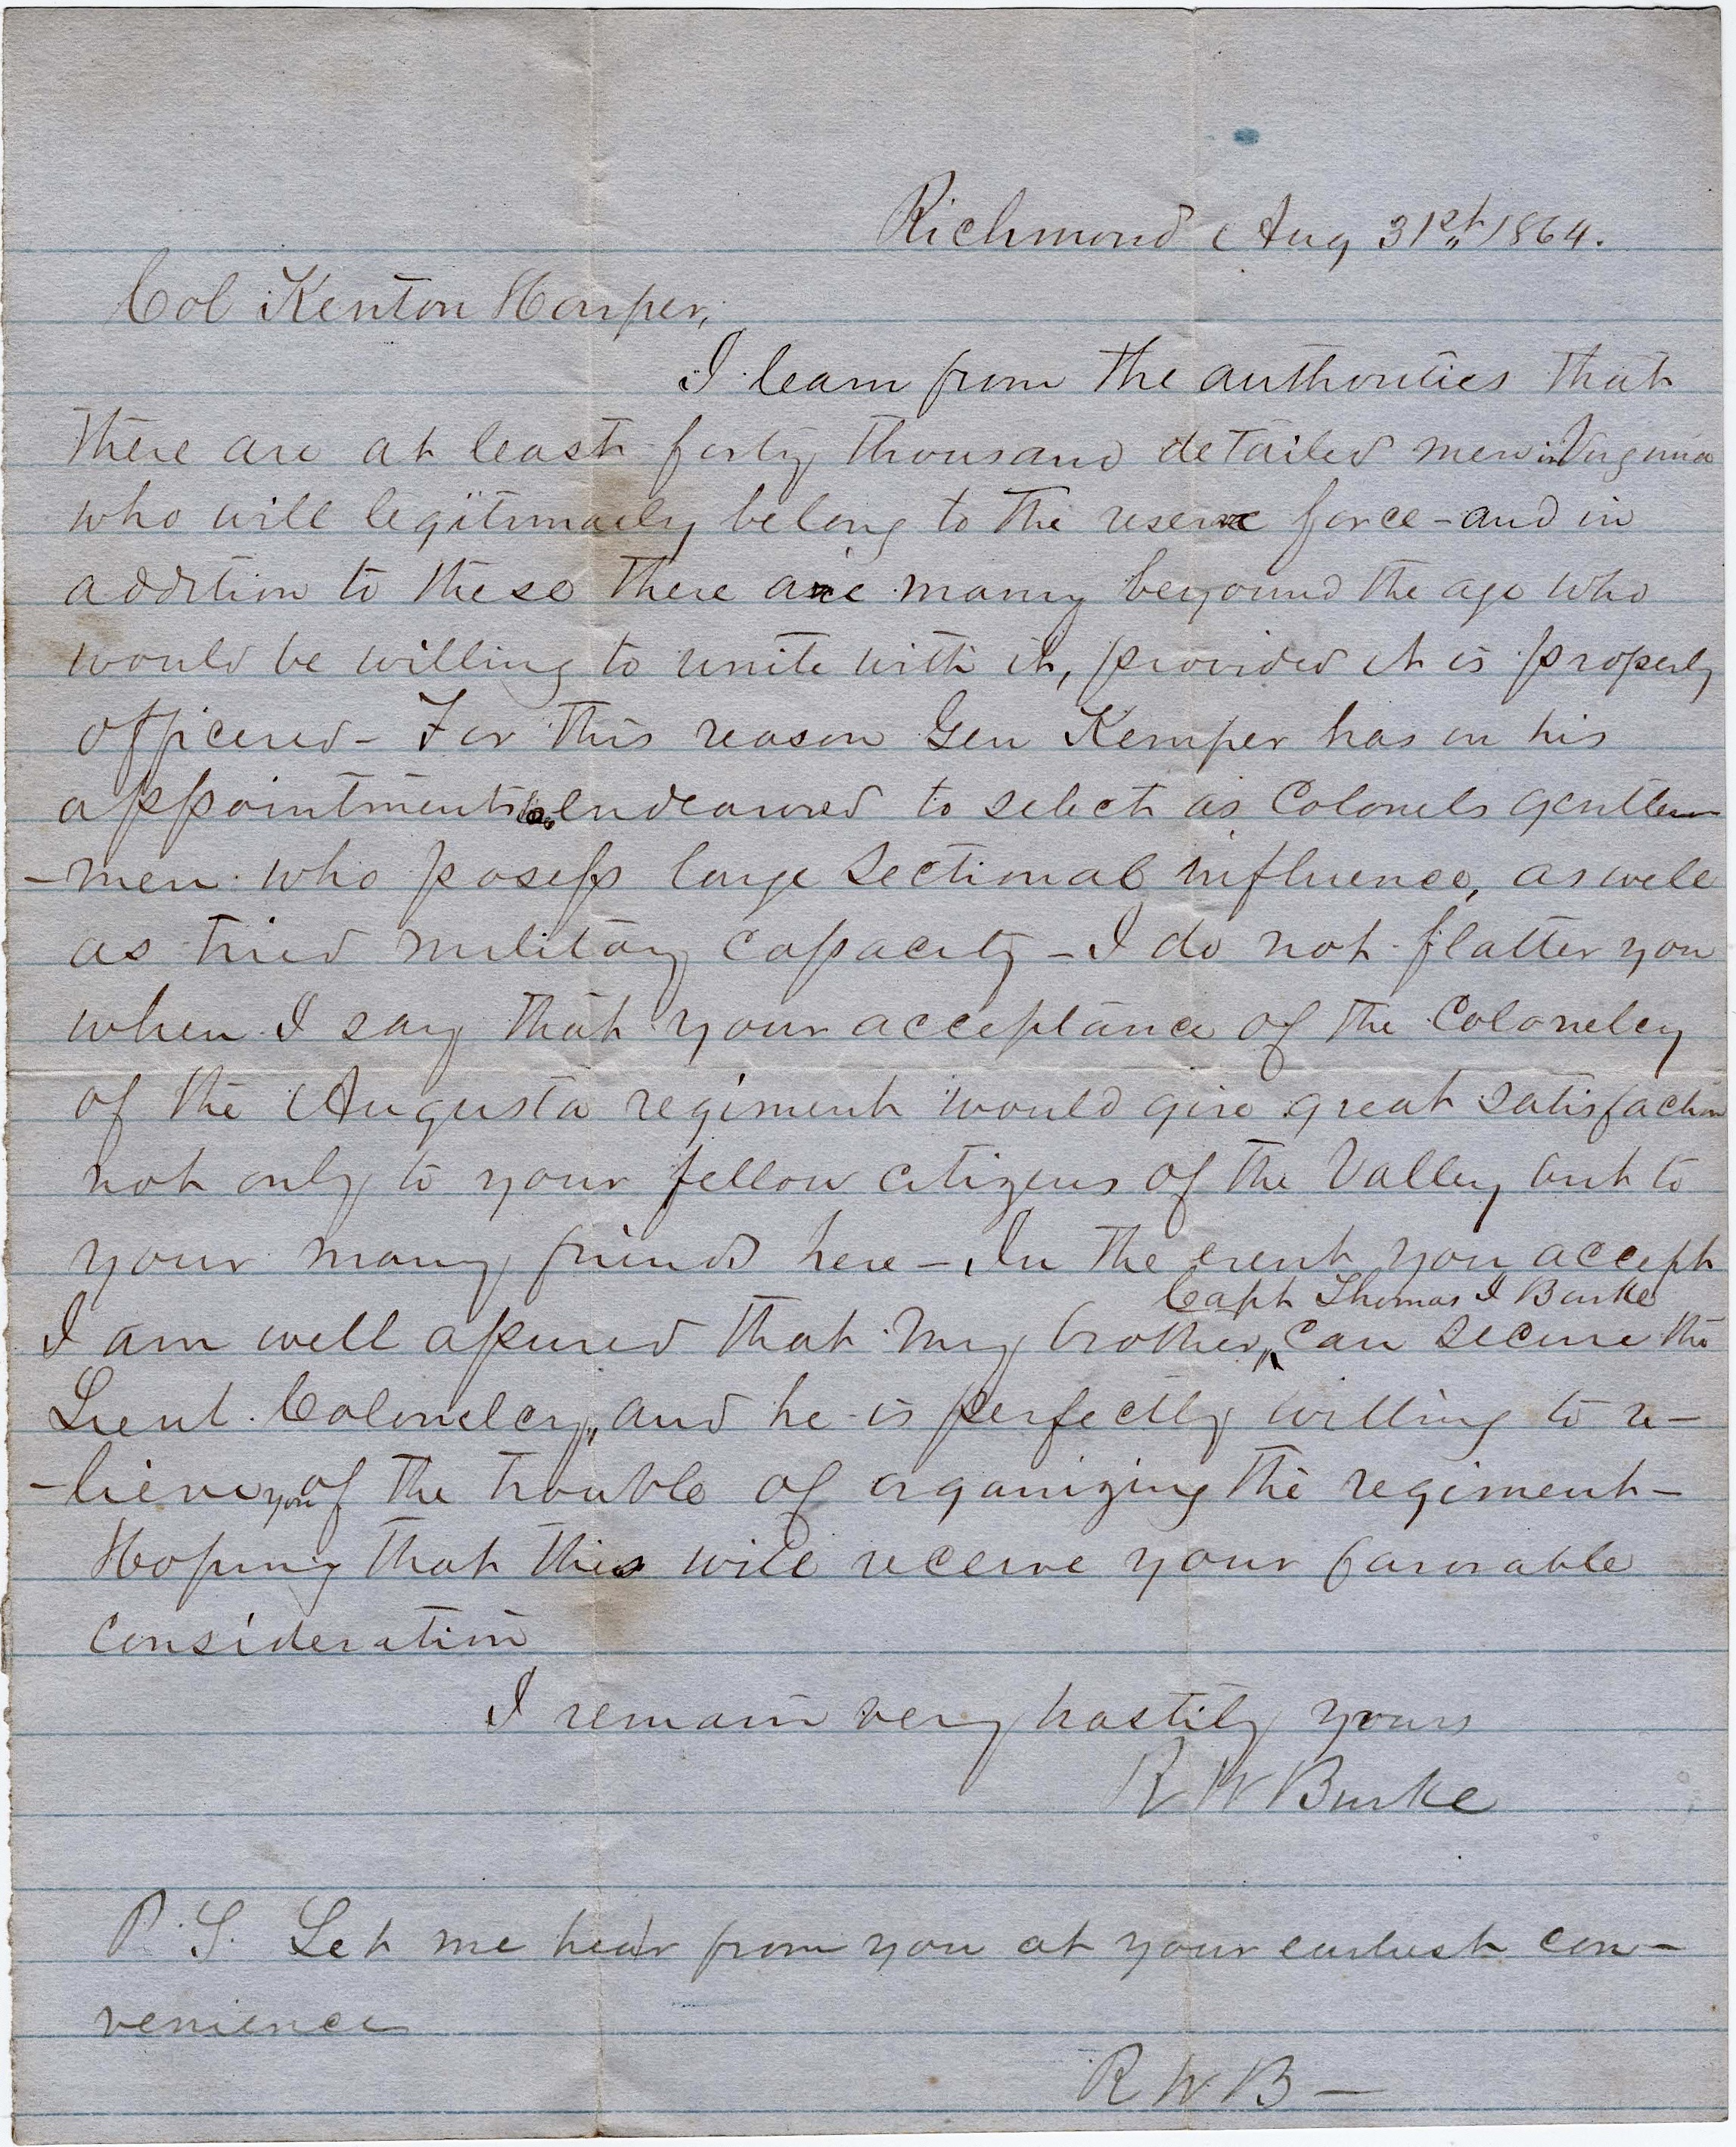 Richmond Aug 31st 1864.
Col Kenton Harper,
I learn from the authorities that
there are at least forty thousand detailed men in Virginia
who will legitimately belong to the reserve force - and in
addition to these there are many beyound the age who
would be willing to unite with it, provided it is properly
officered - For this reason Gen Kemper has in his
appointments endeavored to select as Colonels gentlem
-men who posess large sectional influence, as well
as tried military capacity - I do not flatter you
when I say that your acceptance of the Colonelcy
of the Augusta regiment would give great satisfaction
not only to your fellow citizens of the Valley but to
your many friends here - In the event you accept
Capt Thomas J Burke
I am well assured that my brother, can secure the
Lieut. Colonelcy, and he is perfectly willing to re-
-lieve you of the trouble of organizing the regiment -
Hoping that this will receive your favorable
consideration
I remain very hastily yours
R W Burke
P. S. Let me hear from you at your earliest con-
venience
R W B -